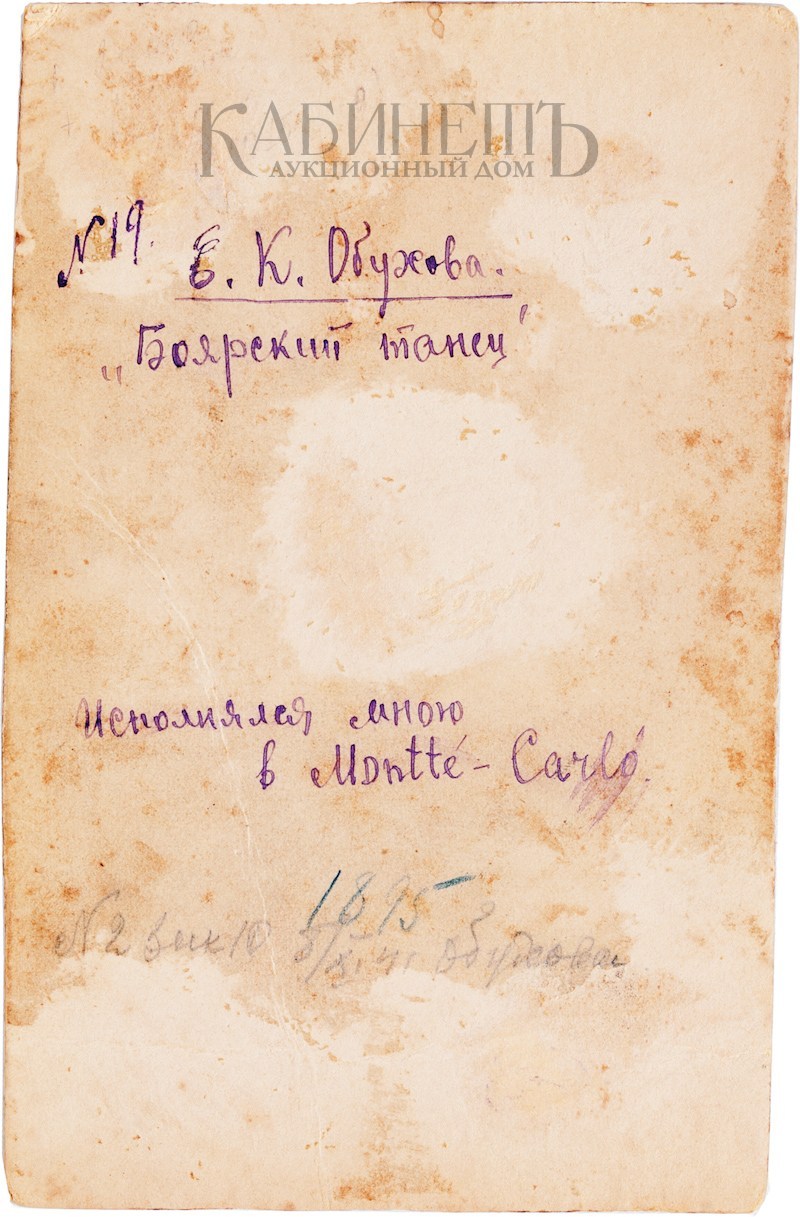 КАБИНЕТЪ
АУКЦИОННЫЙ ДОМ
N 19.
Е. К. Обухова.
„Боярский танец"
Исполнялся мною
в Montté - Carló.
1895
N 2 Обухова